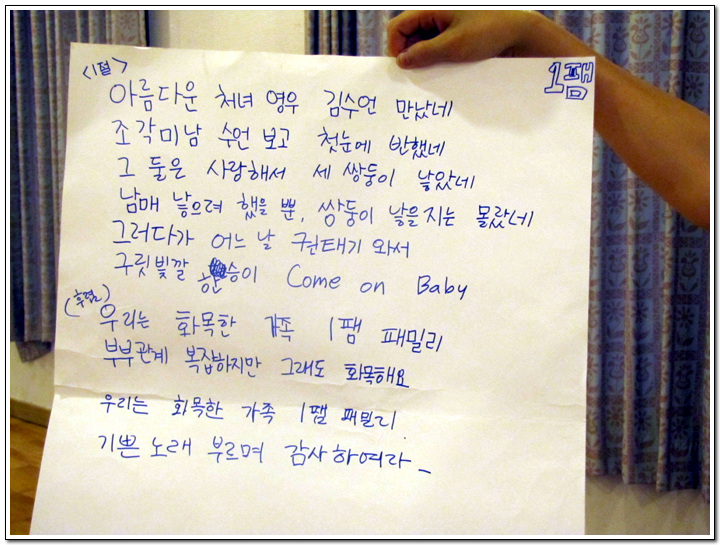 <1절>
1팸
아름다운 처녀 영우 김수언 만났네
조각미남 수언 보고 첫눈에 반했네
그 둘은 사랑해서 세 쌍둥이 낳았네
남매 낳으려 했을 뿐, 쌍둥이 낳을지는 몰랐네
그러다가 어느 날 권태기 와서
구릿빛깔 한승이 Come on Baby
(후렴)
우리는 화목한 가족 1팸 패밀리
부부관계 복잡하지만 그래도 화목해요
우리는 화목한 가족 1팸 패밀리.
기쁜 노래 부르며 감사하여라_